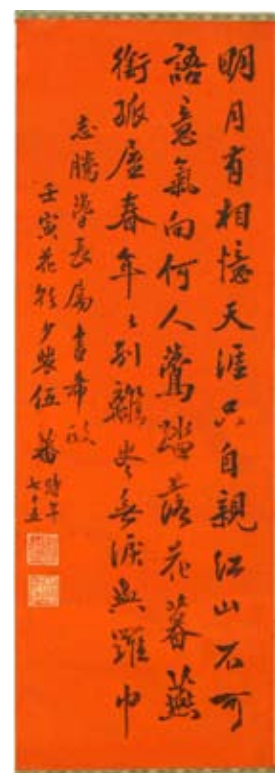 明月有相憶天涯只自親江山不可
語意氣向何人鶯踏落花暮燕
銜孤屋春年〻別離無淚羅巾
志騰學長屬書希政
壬寅花朝少裴伍蕃時年
七十五